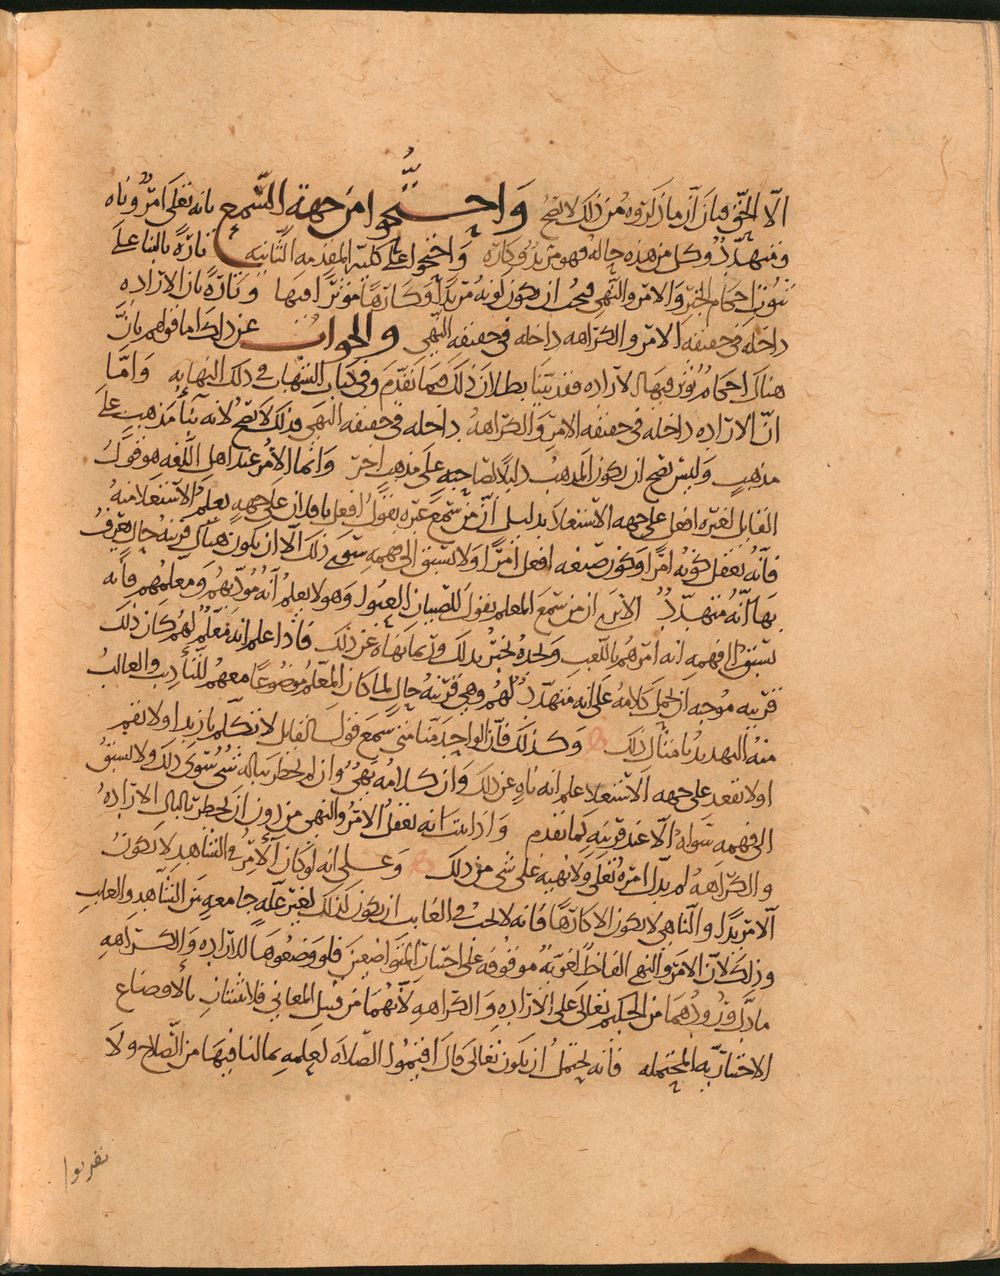 الا الحق فبان أن ما ذكروه من ذلك لا يصح واحتجوا من جهة السمع بانه تعلى امر وناه
ومتهدد وكل من هذه حاله فهو مريد وكاره واحتجوا على كلية المقدمة الثانية تارة بالبنا على
ثبوت احكام الخبر والامر والنهي فيجب ان يكون لكونه مريدا وكارها مؤثرا فيها وتارة بان الارادة
داخلة في حقيقة الامر والكراهة داخلة في حقيقة النهي والجواب عن ذلك اما قولهم بان
هناك احكام يؤثر فيها الارادة فقد بينا بطلان ذلك فيما تقدم وفي كتاب الشبهات في ذلك النهاية واما
ان الارادة داخلة في حقيقة الامر والكراهة داخلة في حقيقة النهي فذلك لا يصح لانه بنا مذهب على
مذهب وليس يصح ان يكون المذهب دليلا لصاحبه على مذهب اخر وانما الامر عند اهل اللغة هو قول
القايل لغيره افعل على جهة الاستعلا بدليل أن من سمع غيره يقول افعل يا فلان على جهة يعلم الاستعلا منه
فانه يعقل كونه امرا وكون صيغة افعل امرا ولا يسبق الى فهمه سوى ذلك الا ان يكون هناك قرينة حال يعرف
بها أنه متهدد الا ترى ان من سمع المعلم يقول للصبيان العبوا وهو لا يعلم أنه مؤدبهم ومعلمهم فانه
يسبق الى فهمه انه امرهم باللعب وحده لخبر بذلك وربما نهاه عن ذلك فاذا علم انه معلم لهم كان ذلك
قرينة موجبة ان يحمل كلامه على انه متهدد لهم وهي قرينة حال لما كان المعلم موضوعا معهم للتأديب والغالب
منه التهديد بامثال ذلك وكذلك فان الواحد منا متى سمع قول القايل لا تكلم يا زيد او لا تقم
او لا تقعد على جهة الاستعلا علم انه ناه عن ذلك وان كلامه نهي وان لم يخطر بباله شي سوى ذلك ولا يسبق
الى فهمه سواه الا عند قرينة كما تقدم واذا ثبت انه يعقل الامر والنهي من دون ان يخطر بالبال الارادة
والكراهة لم يدل امره تعلى ولا نهيه على شي من ذلك وعلى انه لو كان الآمر في الشاهد لا يكون
الا مريدا والناهي لا يكون الا كارها فانه لا يجب في الغايب ان يكون كذلك لغير علة جامعة بين الشاهد والغايب
وذلك لان الامر والنهي الفاظ لغوية موقوفة على اختيار المتواضعين فلو وضعوها للارادة والكراهة
ما دل ورودهما من الحكيم تعالى على الارادة والكراهة لأنهما من قبيل المعاني فلا يثبتان بالأوضاع
الاختيارية المحتملة فانه يحتمل ان يكون تعالى قال اقيموا الصلاة لعلمه بما لنا فيها من الصلاح ولا
تقربوا